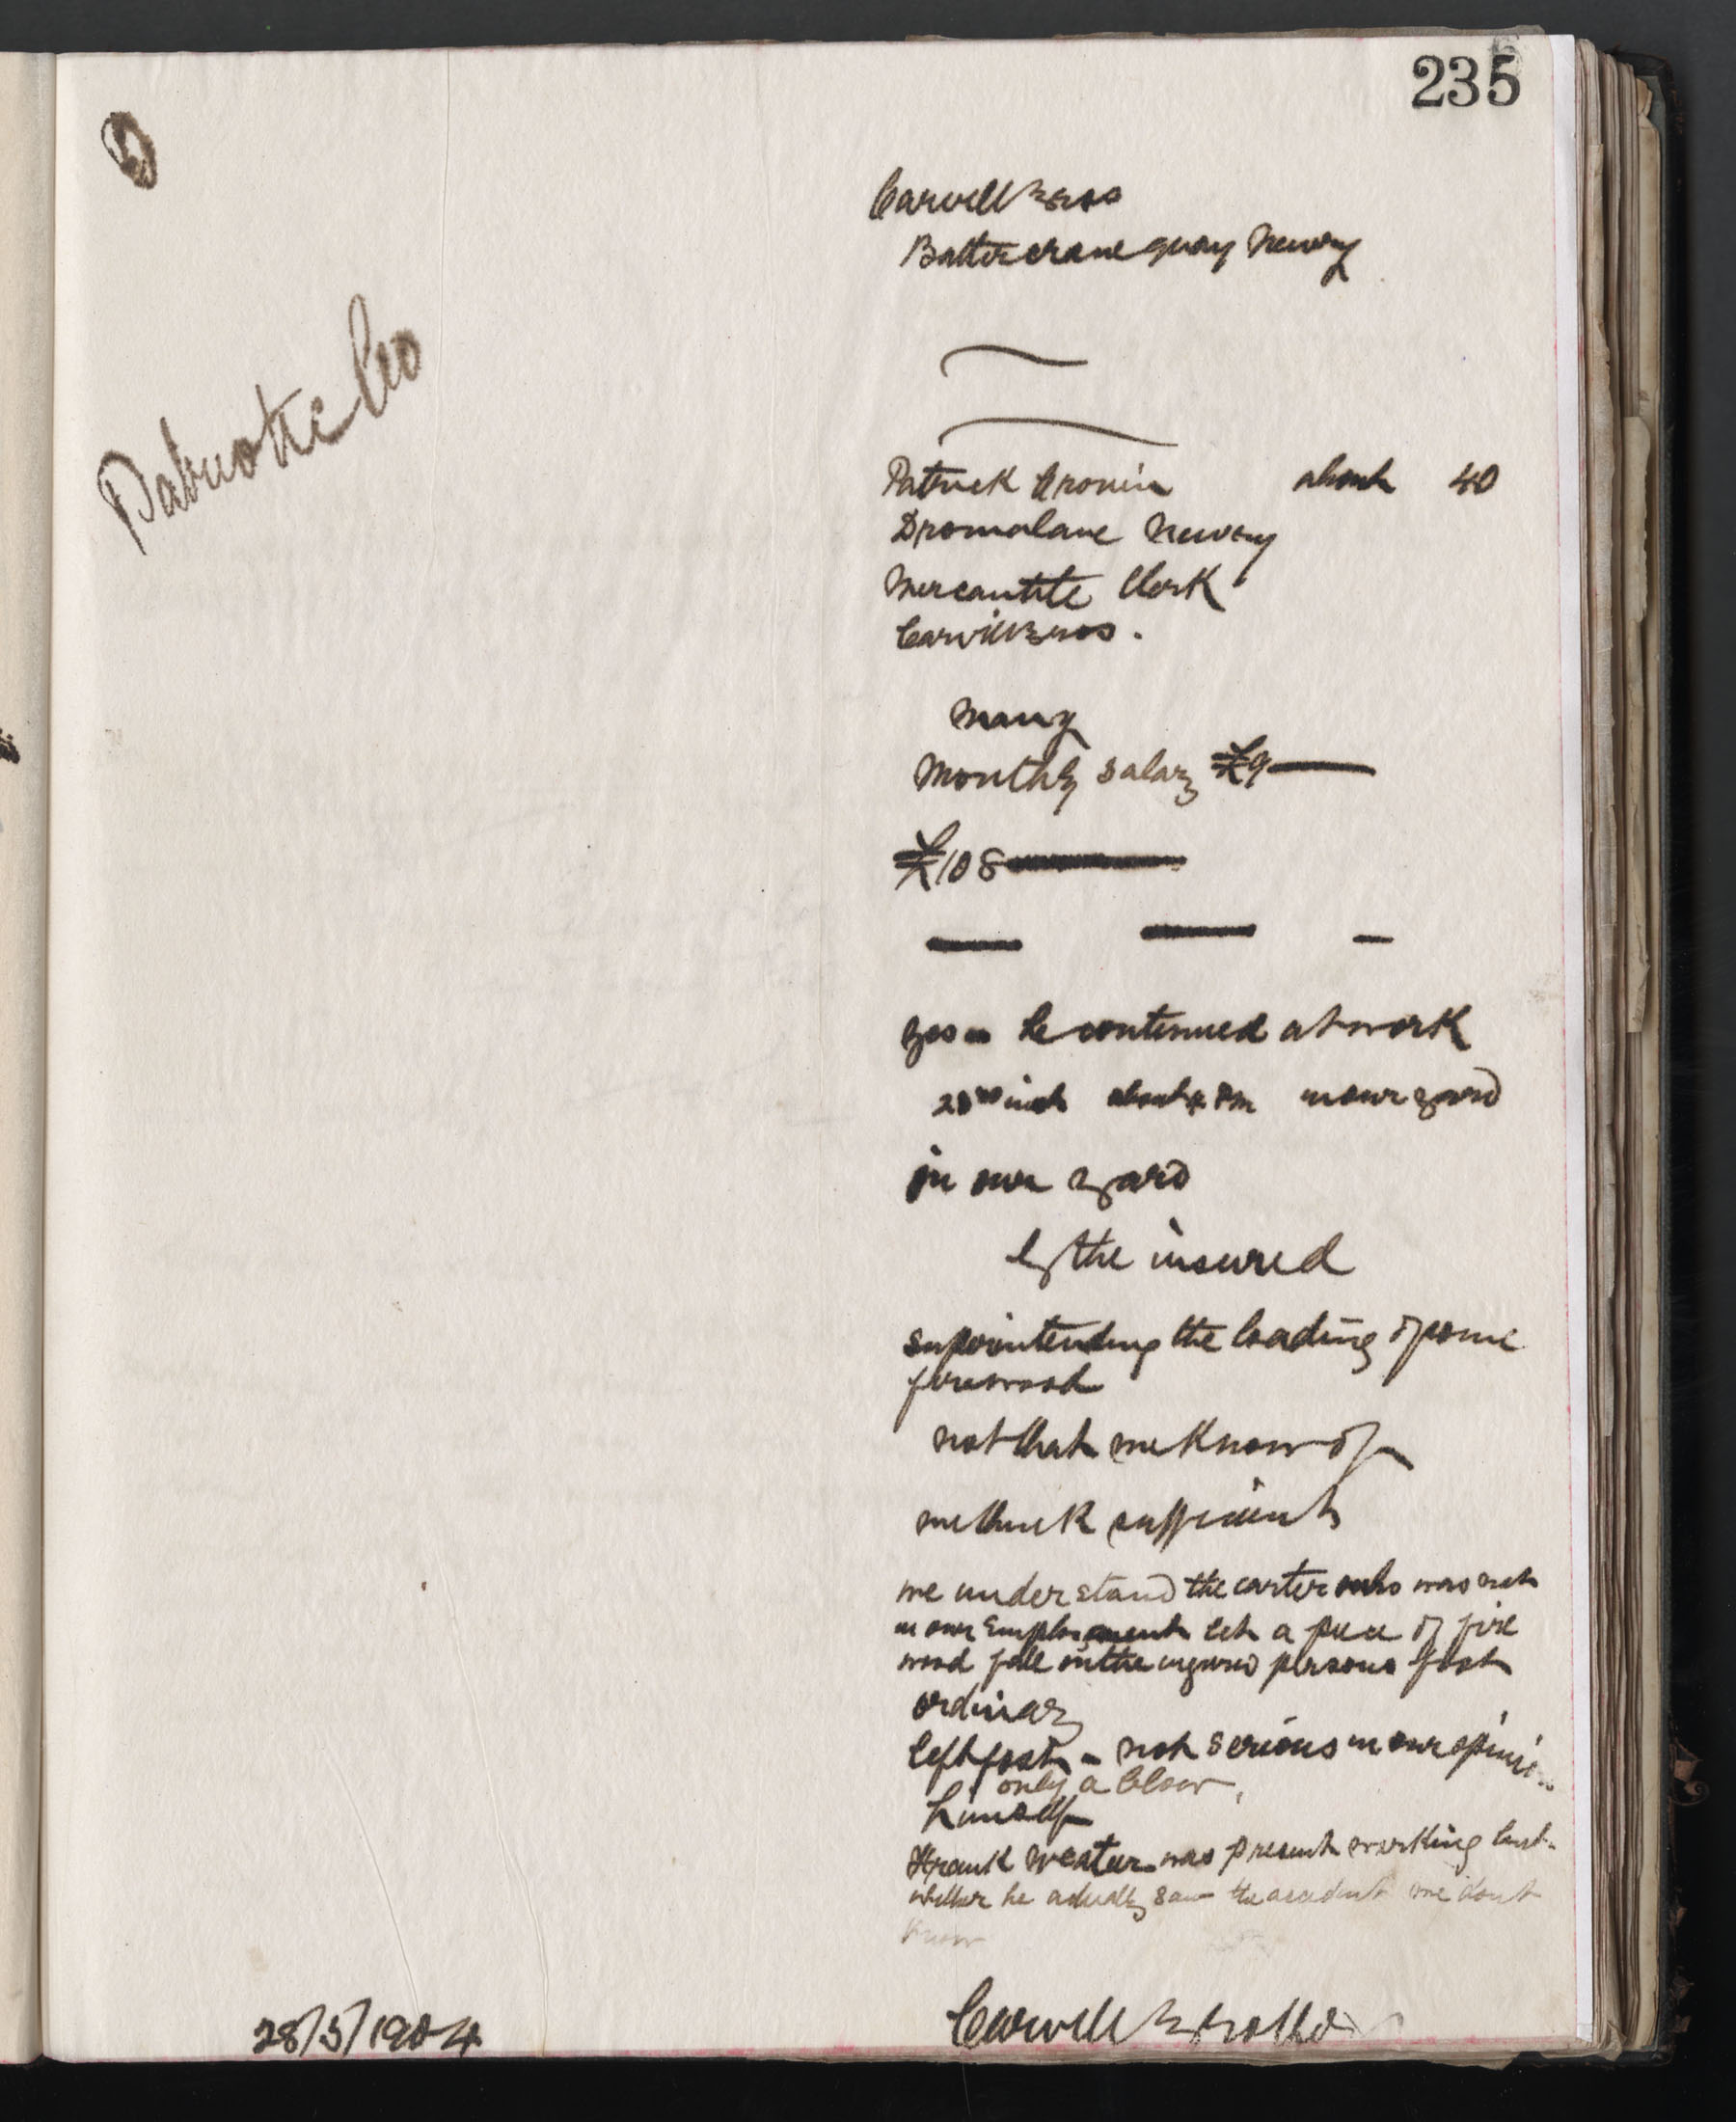 235
Carvill Bros
Butter crane quay Newry
Patriotic Co
Patrick Cronin about 40
Dromalane Newry
Mercantile Clerk
Carvill Bros.
many
Monthly salary £9
£108
yes - he continued at work
inst about 4 Pm in our yard
in our yard
by the insured
superintending the loading of some
firewood
not that we know of
we think sufficient
we understand the carter who was not
in our Employment let a piece of fire
wood fall on the injured persons foot
ordinary
left foot - not serious in our opinion
only a blow,
himself
Frank was present working but
whether he actually saw the accident we dont
know
28/5/1904
Carvill Brothers